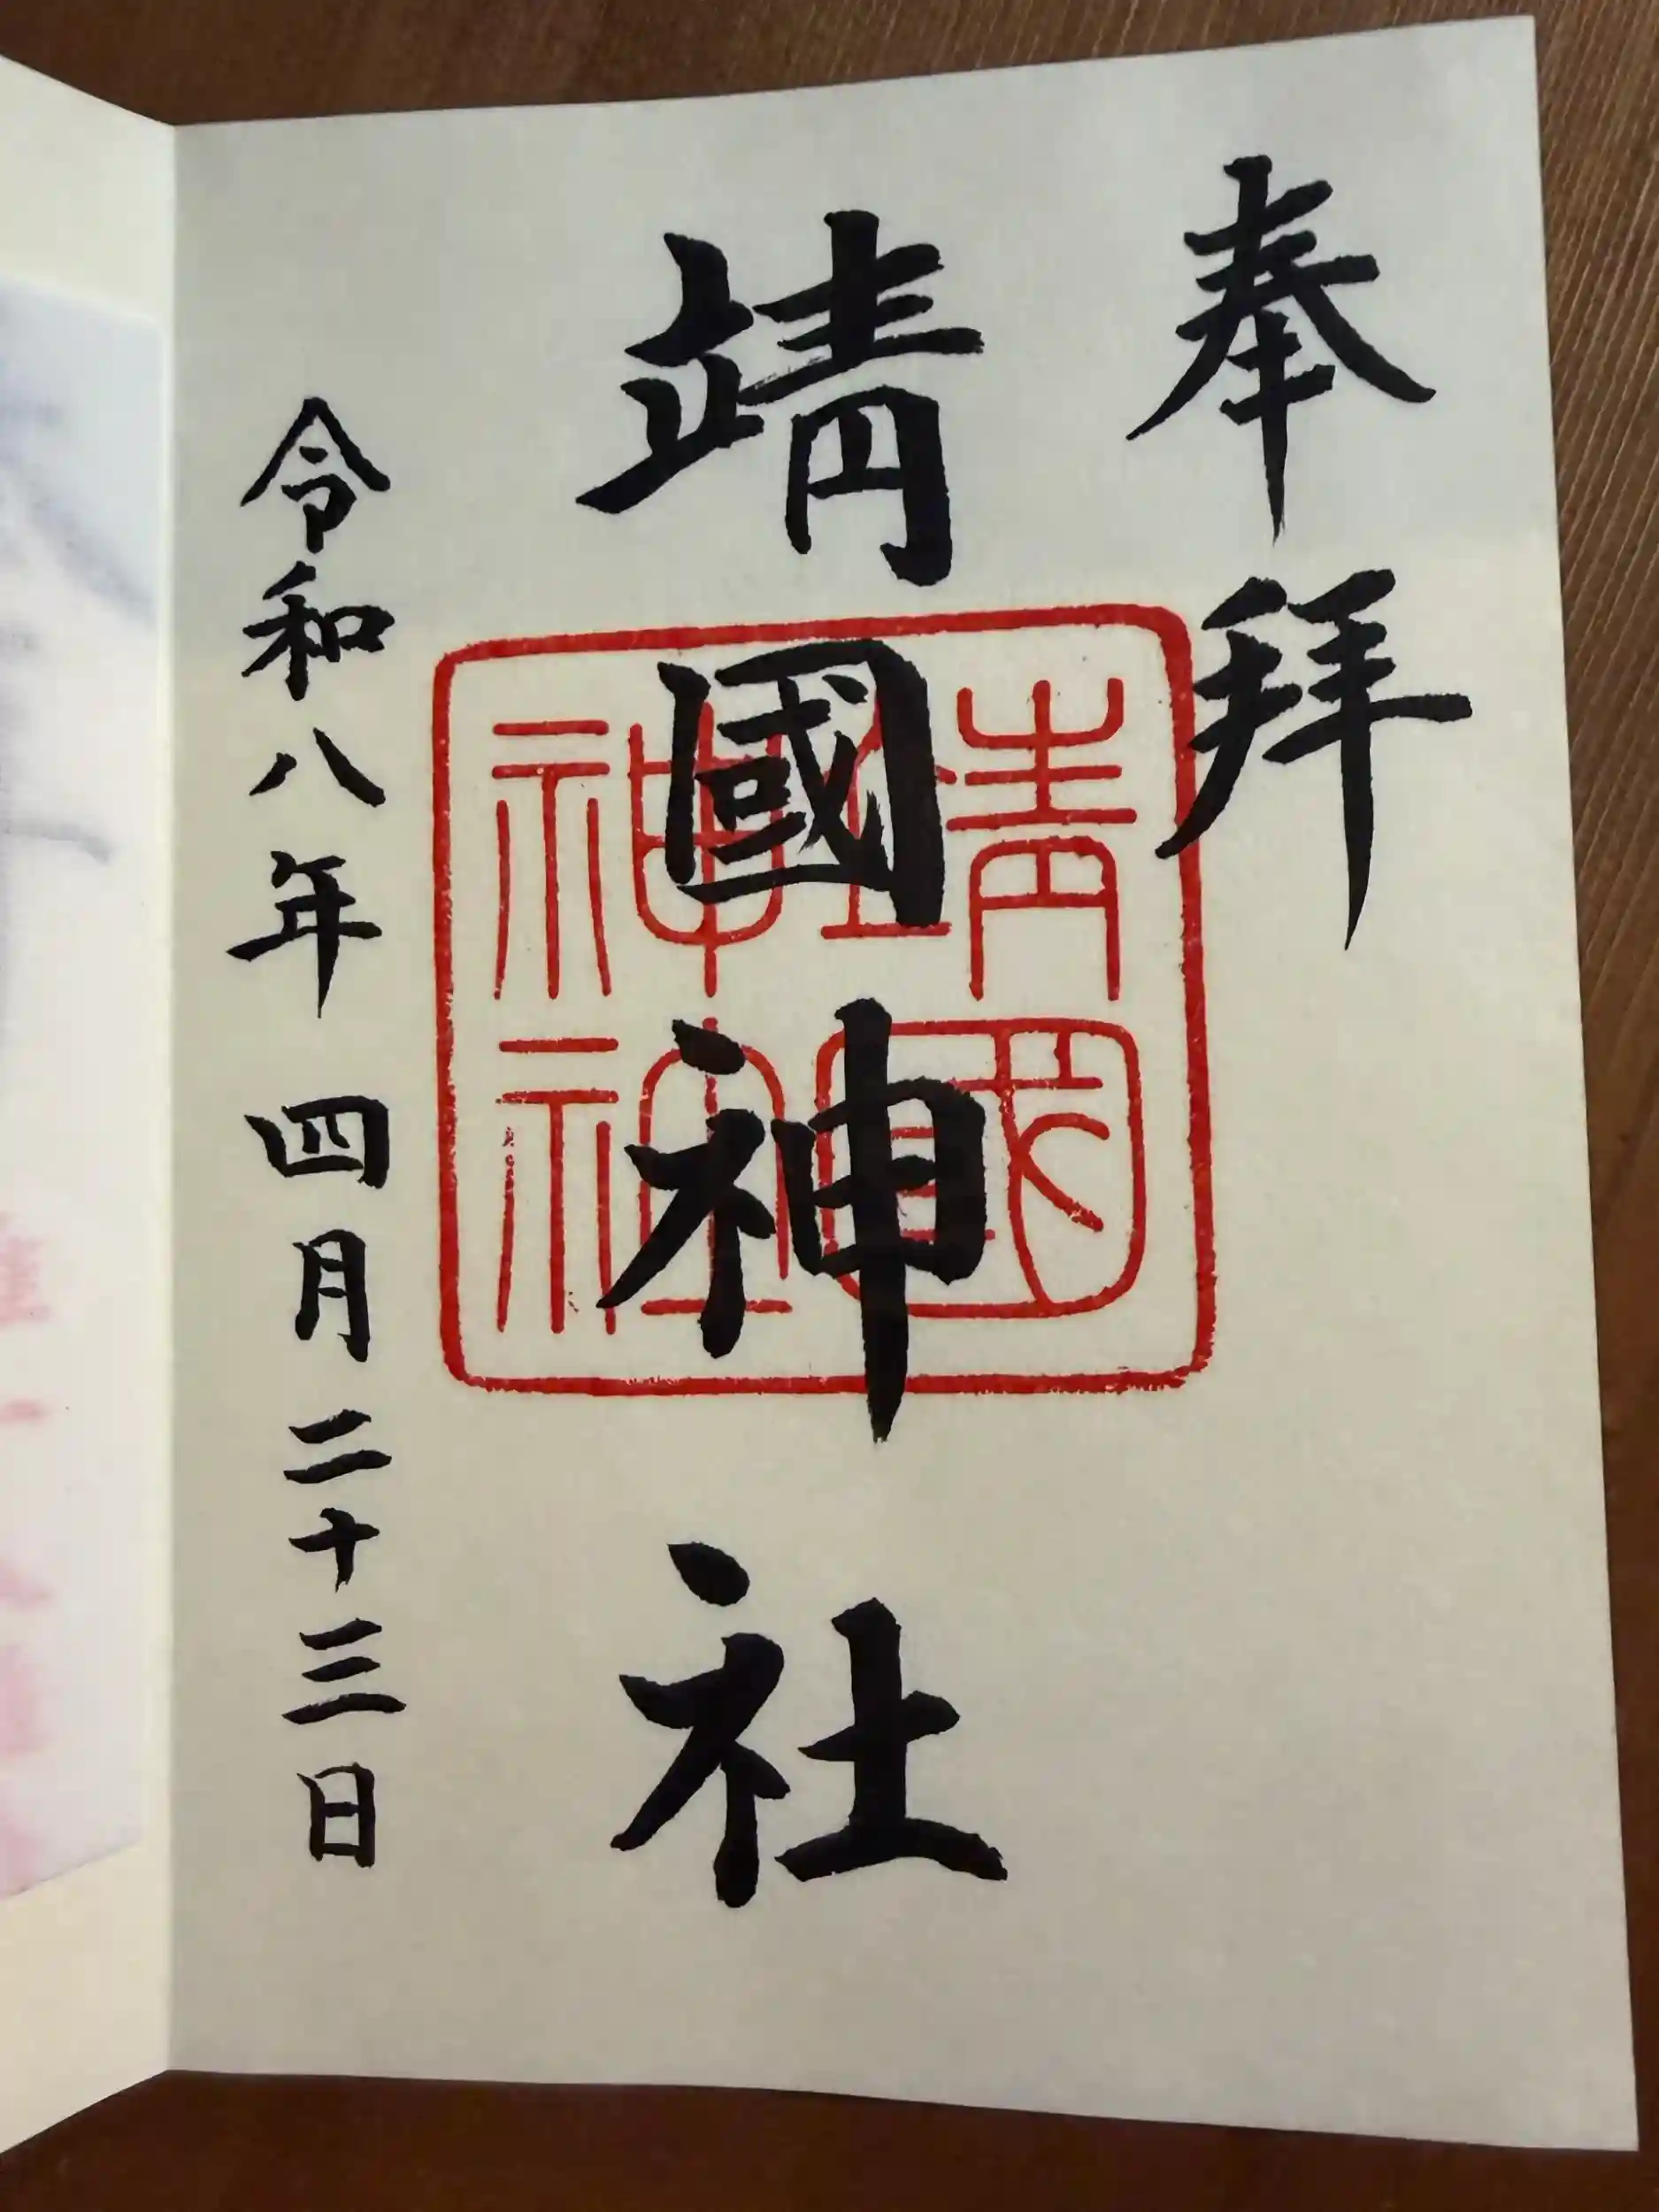 奉拝
靖國神社
靖國
神社
令和八年四月二十三日